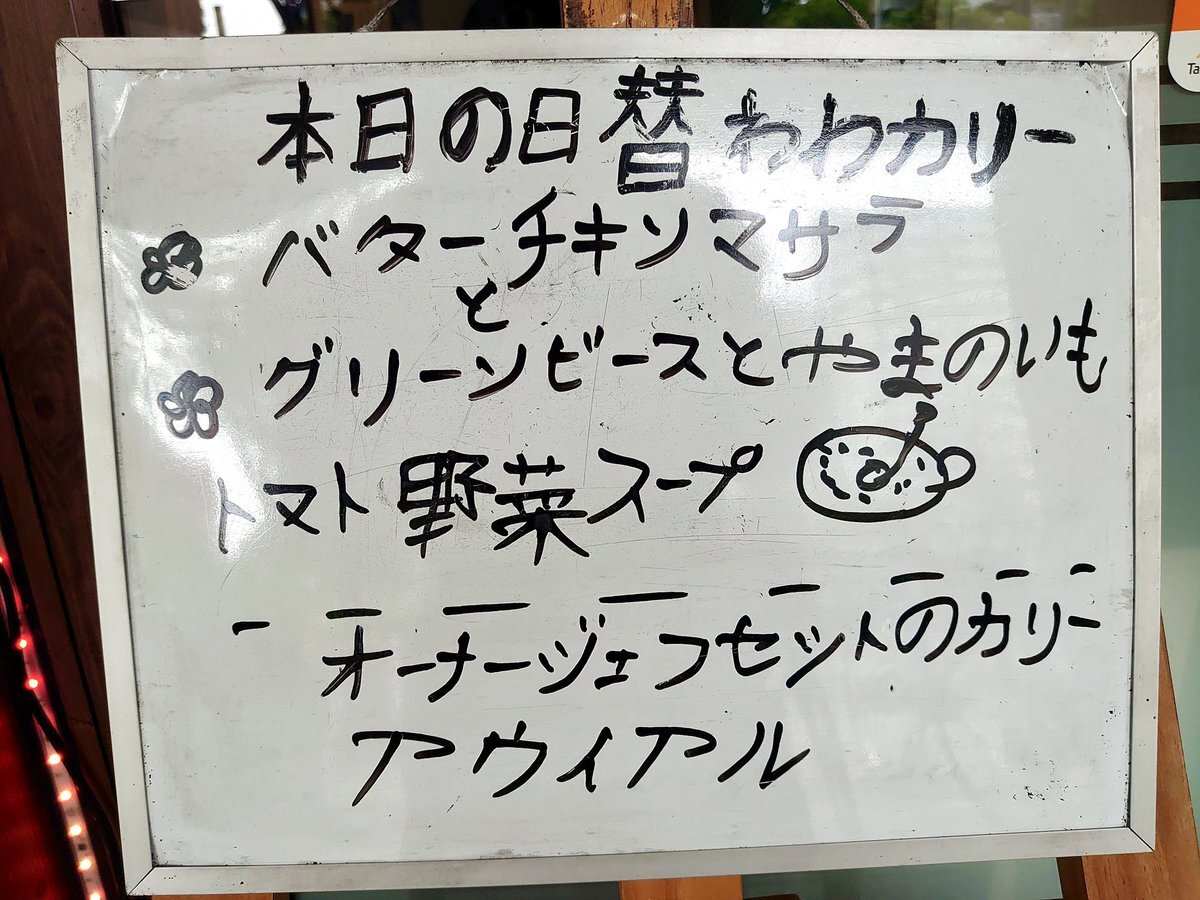 本日の日替わわカリー
バターチキソマサラ
と
グリーンビースとやまのいも
トマト野菜スープ
オーナーヅェフセットのカリー
アウィアル
Ta